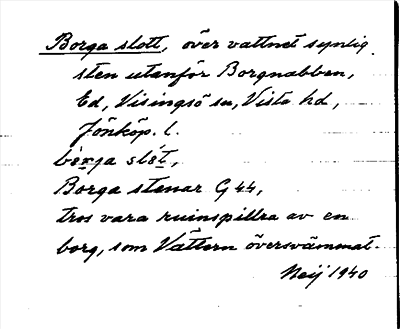 Borga slott, över vattnet synlig
sten utanför Borgnabben,
Ed, Visingsö sn, Vista hd,
Jönköp. l.
Borga stenar G 44,
tros vara ruinspillra av en
borg, som Vättern översvämmat.
Neij 1940